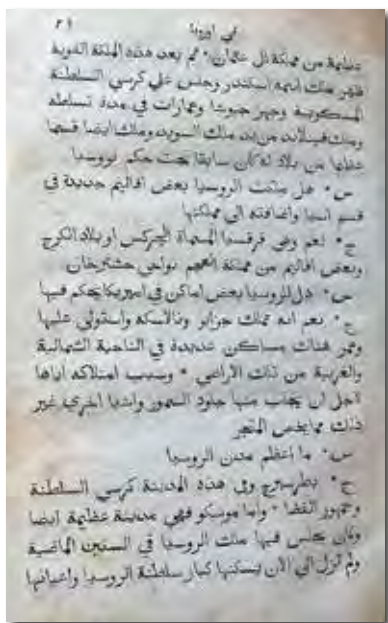 في اوروپا ٢١
عظيمة من مملكة ال عثمان * ثم بعد هذه الملكة القوية
ظهر ملك اسمه اسكندر وجلس علي كرسي السلطنة
المسكوبية وجهز جيوشا وعمارات في مدة تسلطه
وملك فينلاند من يد ملك السويد وملك ايضا قسما
عظيما من بلاد له كان سابقا تحت حكم لروسيا
س * هل ملكت الروسيا بعض اقاليم جديدة في
قسم اسيا واضافته الي مملكتها
ج * نعم وهي قرقسيا المسماة الچركس او بلاد الكرج
وبعض اقاليم من مملكة العجم نواحي حشترخان
س * هل للروسيا بعض اماكن في اميريكا يحكم فيها
ج * نعم انه تملك جزاير ونالاسكه واستولي عليها
وعمر هناك مساكن عديدة في الناحية الشمالية
والغربية من تلك الاراضي * وسبب امتلاكه اياها
لاجل ان يجلب منها جلود السمور واشيا اخري غير
ذلك مما يخص المتجر
س * ما اعظم مدن الروسيا
ج * بطرسبرج وهي هذه المدينة كرسي السلطنة
وجمهور القضا * واما موسكو فهي مدينة عظيمة ايضا
وكان يجلس فيها ملك الروسيا في السنين الماضية
ولم تزل الي الان يسكنها كبار سلطنة الروسيا واعيانها